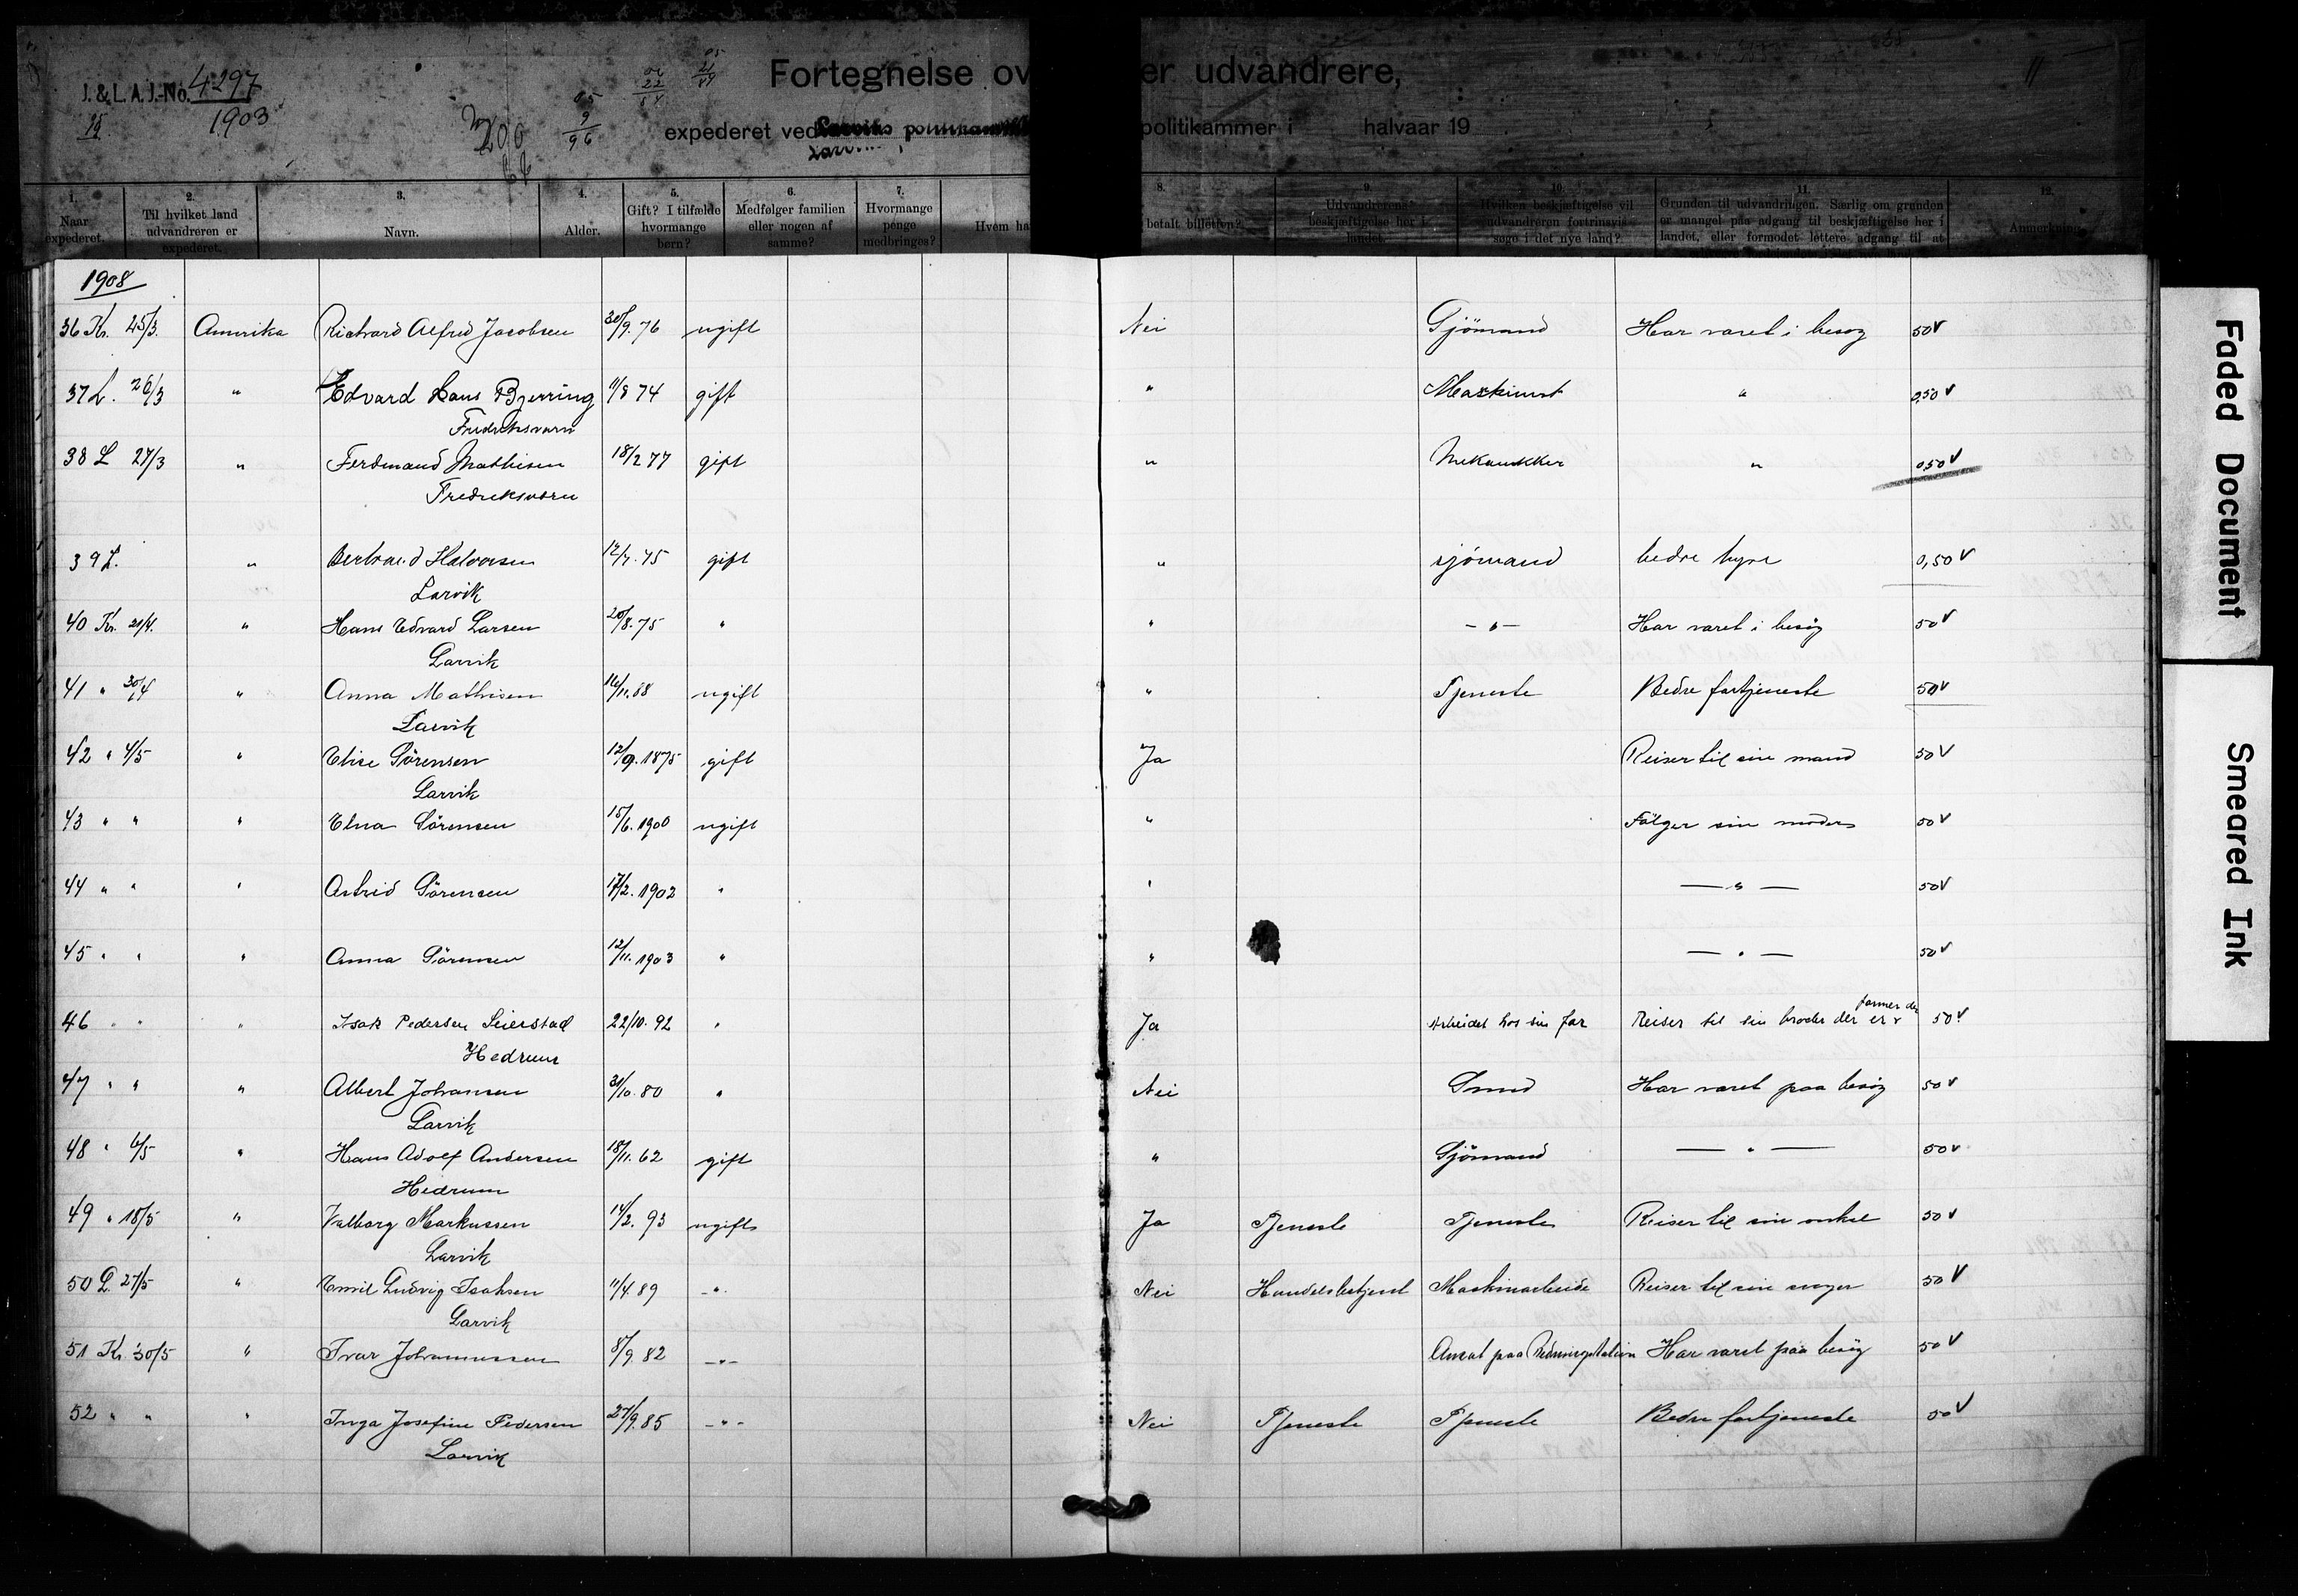 J. & L. A. J.-No. 4297
1903
Fortegnelse ov er udvandrere,
expederet ved Larviks politikammer i halvaar 19
1. Naar expederet.
2. Til hvilket land udvandreren er expederet.
3. Navn.
4. Alder.
5. Gift? I tilfælde hvormange børn?
6. Medfølger familien eller nogen af samme?
7. Hvormange penge medbringes?
8. Hvem ha betalt billetten?
9. Udvandrerens beskjæftigelse her i landet.
10. Hvilken beskjæftigelse vil udvandreren fortrinsvis søge i det nye land?
11. Grunden til udvandringen. Særlig om grunden er mangel paa adgang til beskjæftigelse her i landet, eller formodet lettere adgang til at
12. Anmerkning.
1908
36 Kr. 25/3. Amerika Richard Alfred Jacobsen 30/9. 76 ugift Nei Sjömand Har været i besøg 50 V
37 L. 26/3 " Edvard Hans Bjerring 11/8 74 gift " Maskinist " 0,50 V
Fredriksværn
38 L 27/3 " Ferdinand Mathisen 18/2 77 gift " Mekanikker " 0,50 V
Fredriksværn
39 L. " Bertrand Halvorsen 12/7. 75 gift " sjömand bedre hyre 0,50 V
Larvik
40 Kr. 21/4. " Hans Edvard Larsen 20/8. 75 " " - " - Har været i besög 50 V
Larvik
41 " 30/4 " Anna Mathisen 16/11. 88 ugift " Tjeneste Bedre fortjeneste 50 V
Larvik
42 " 4/5 " Elise Sörensen 12/9. 1875 gift Ja Reiser til sin mand 50 V
Larvik
43 " " " Elna Sörensen 15/6. 1900 ugift " Fölger sin moder 50 V
44 " " " Astrid Sörensen 17/2. 1902 " " — " — 50 V
45 " " " Anna Sörensen 12/11. 1903 " " — " — 50 V
46 " " " Isak Pedersen Seierstad 22/10. 92 " Ja Arbeidet hos sin far Reiser til sin broder der er farmer der 50 V
Hedrum
47 " " " Albert Johansen 31/10. 80 " Nei Smed Har været paa besög 50 V
Larvik
48 " 6/5 " Hans Adolf Andersen 18/11. 62 gift " Sjömand — " — 50 V
Hedrum
49 " 18/5 " Valborg Markussen 14/2. 93 ugift Ja Tjeneste Tjeneste Reiser til sin onkel 50 V
Larvik
50 L. 27/5 " Emil Ludvig Isaksen 11/4. 89 - " - Nei Handelsbetjent Maskinarbeide Reiser til sin svoger 50 V
Larvik
51 Kr 30/5 " Ivar Johannessen 8/9. 82 - " - Ansat paa Redningsstation Har været paa besög 50 V
52 " " " Inga Josefine Pedersen 27/9. 85 - " - Nei Tjeneste Tjeneste Bedre fortjeneste 50 V
Larvik
Faded Document
Smeared Ink